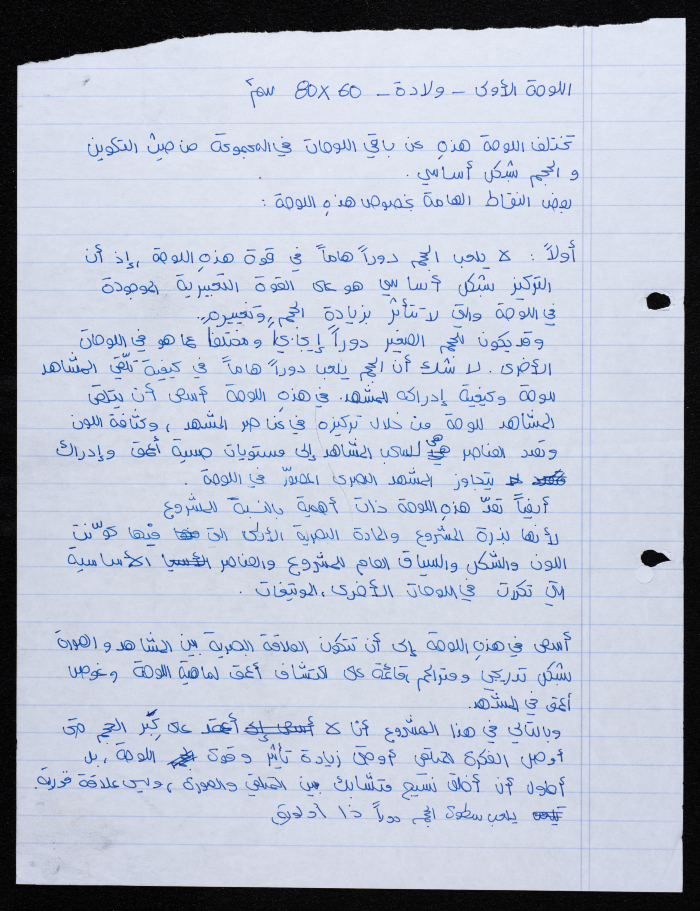 اللوحة الأولى – ولادة – 60×80 سم
تختلف اللوحة هذه عن باقي اللوحات في المجموعة من حيث التكوين
و الحجم بشكل أساسي .
بعض النقاط الهامة بخصوص هذه اللوحة :
أولاً : لا يلعب الحجم دوراً هاماً في قوة هذه اللوحة ، إذ أن
التركيز بشكل أساسي هو على القوة التعبيرية الموجودة
في اللوحة والتي لا تتأثر بزيادة الحجم وتغييره .
وقد يكون للحجم الصغير دوراً إيجابياً ومختلفاً عما هو في اللوحات
الأخرى . لا شك أن الحجم يلعب دوراً هاماً في كيفية تلقي المشاهد
للوحة وكيفية إدراكه للمشهد . في هذه اللوحة أسعى أن يتلقى
المشاهد للوحة من خلال تركيزه في عناصر المشهد ، وكثافة اللون
وتعدد العناصر هي لسحب المشاهد إلى مستويات حسية أعمق وإدراك
يتجاوز المشهد البصري المصوّر في اللوحة .
أيضاً تعدّ هذه اللوحة ذات أهمية بالنسبة للمشروع
لأنها بذرة المشروع والمادة البصرية الأولى التي فيها كوّنت
اللون والشكل والسياق العام للمشروع والعناصر الأساسية
التي تكررت في اللوحات الأخرى ، الموتيفات .
أسعى في هذه اللوحة إلى أن تتكون العلاقة البصرية بين المشاهد و الصورة
بشكل تدريجي ومتراكم قائمة على اكتشاف أعمق لماهية اللوحة وغوص
أعمق في المشهد .
وبالتالي في هذا المشروع أنا لا أسعى إلى أعتمد على كِبَر الحجم حتى
أوصل الفكرة للمتلقي أو حتى زيادة تأثير وقوة اللوحة ، بل
أحاول أن أخلق نسيج متشابك بين المتلقي والصورة ، وليس علاقة فورية
يلعب سطوة الحجم دوراً